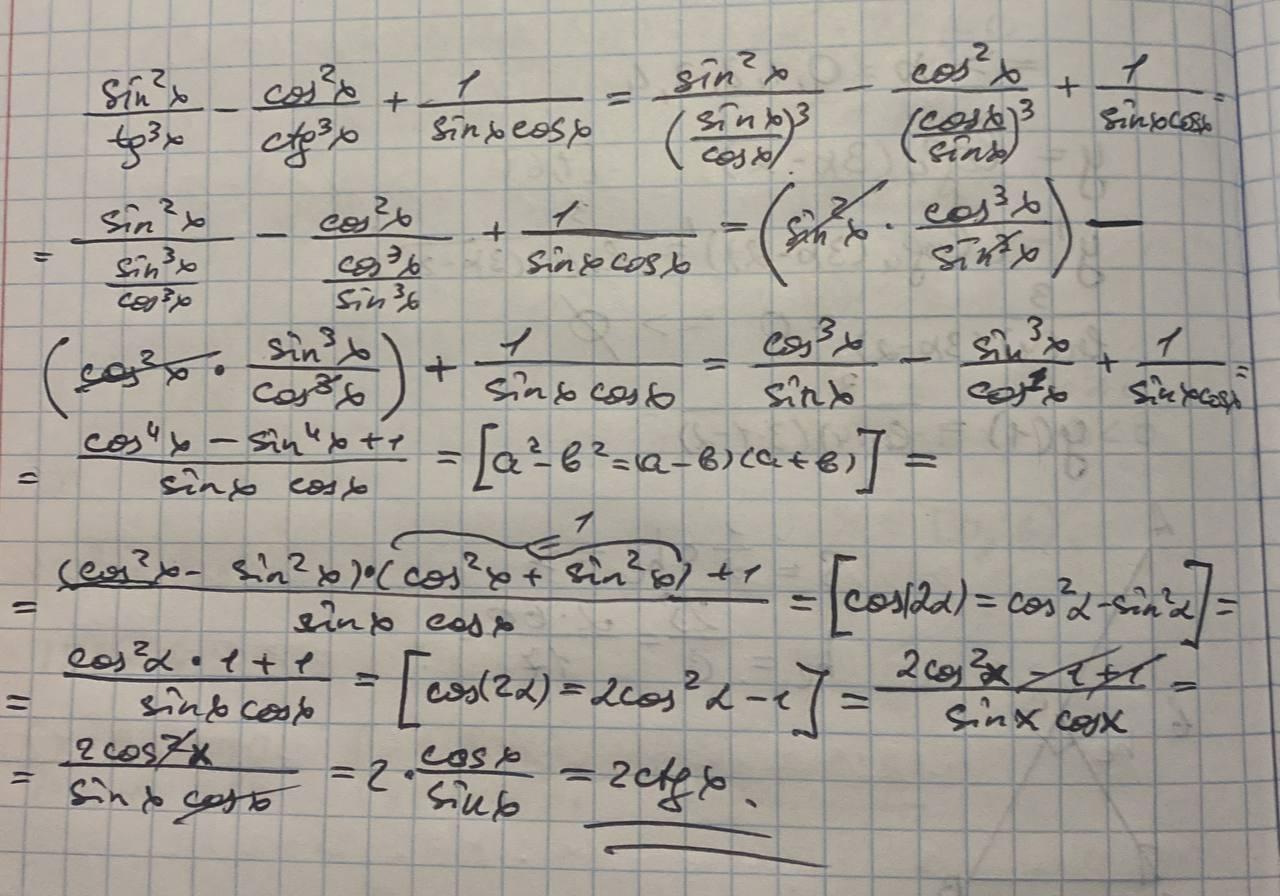 sin²x/tg³x − cos²x/ctg³x + 1/(sinx cosx) = sin²x/(sinx/cosx)³ − cos²x/(cosx/sinx)³ + 1/(sinx cosx) =
= sin²x/(sin³x/cos³x) − cos²x/(cos³x/sin³x) + 1/(sinx cosx) = (sin²x · cos³x/sin³x) −
(cos²x · sin³x/cos³x) + 1/(sinx cosx) = cos³x/sinx − sin³x/cosx + 1/(sinx cosx) =
= (cos⁴x − sin⁴x + 1)/(sinx cosx) = [a² − b² = (a − b)(a + b)] =
1
= ((cos²x − sin²x)·(cos²x + sin²x) + 1)/(sinx cosx) = [cos(2α) = cos²α − sin²α] =
= (cos2α · 1 + 1)/(sinx cosx) = [cos(2α) = 2cos²α − 1] = (2cos²x − 1 + 1)/(sinx cosx) =
= 2cos²x/(sinx cosx) = 2 · cosx/sinx = 2ctgx.